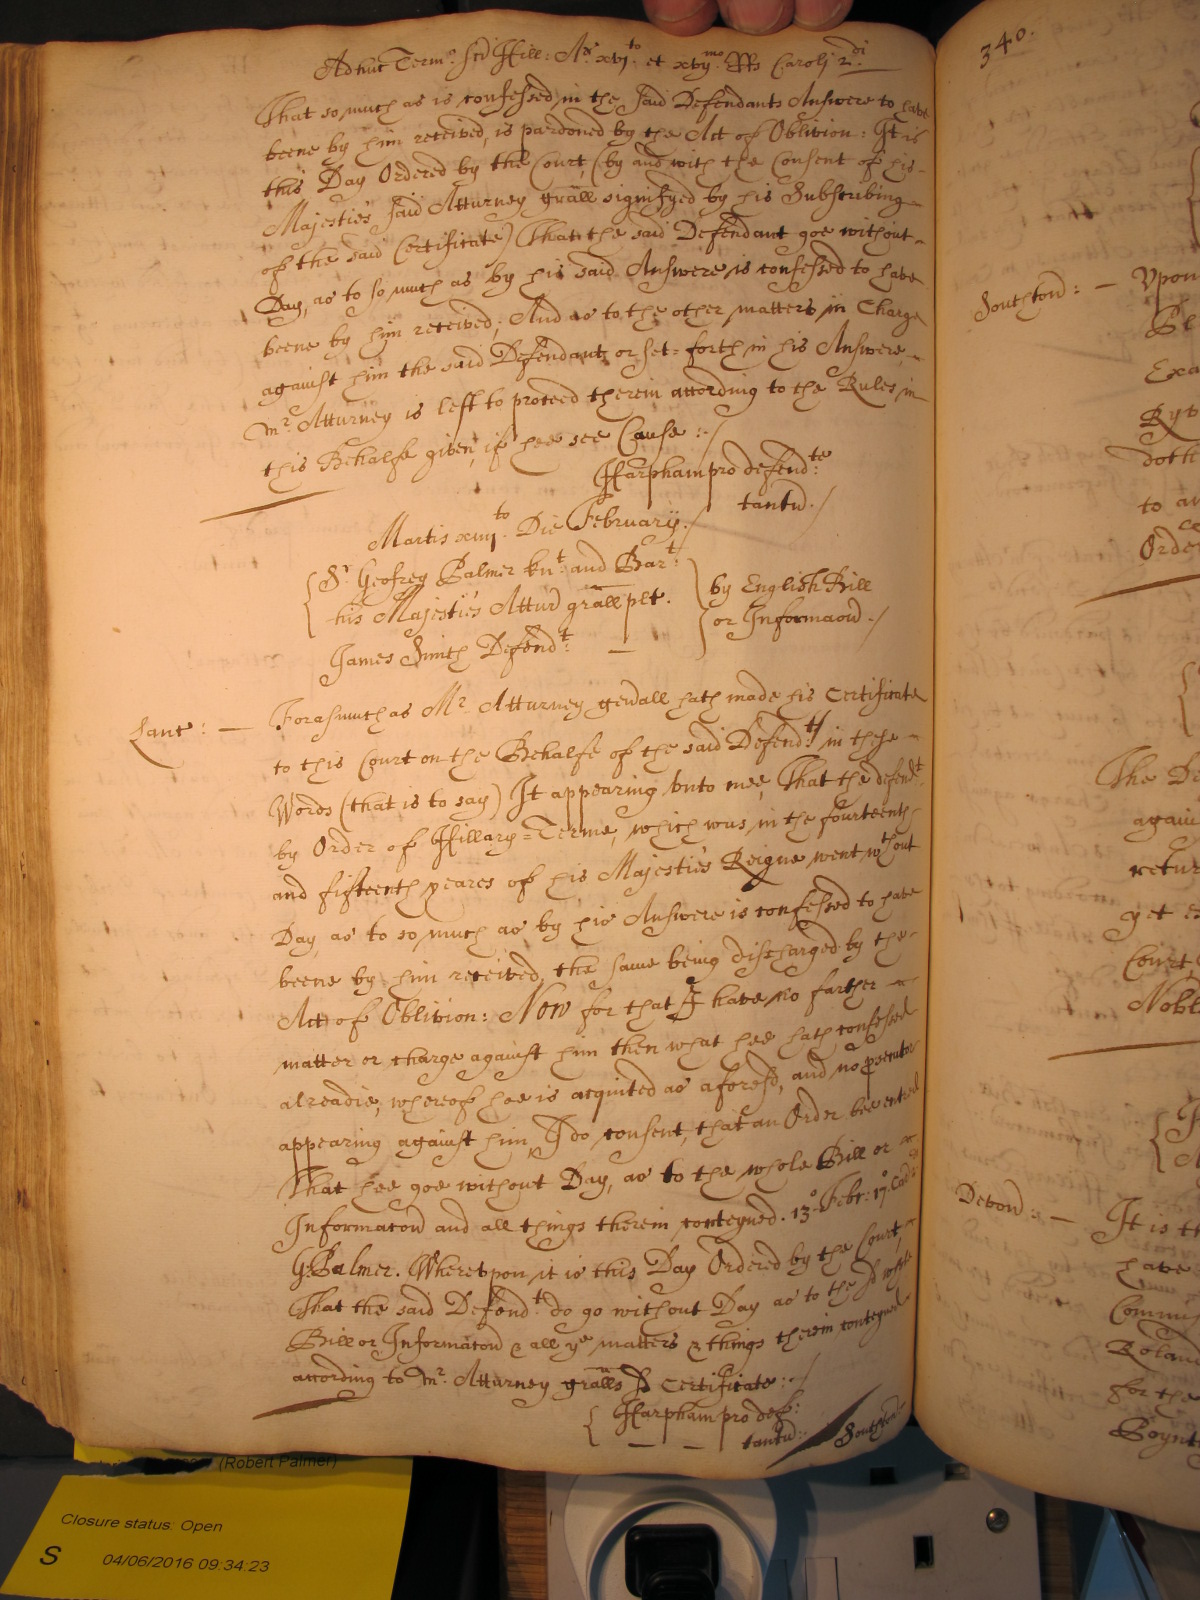 Adhuc Term.º Sci Hill: Aº. xvj.to et xvij.mo RRs Caroli 2.di
That so much as is confessed in the said Defendants Answere to have
beene by him received, is pardoned by the Act of Oblivion: It is
this Day Ordered by the Court, (by and with the Consent of his
Majesties said Atturney grãll signifyed by his Subscribing
of the said Certificate) That the said Defendant goe without
Day, as to so much as by his said Answere is confessed to have
beene by him received; And as to the other matters in Charge
against him the said Defendant, or set=forth in his Answere
Mr. Atturney is left to proceed therein according to the Rules in
this Behalfe given, if hee see Cause :-/
Harpham pro defend:te
tantu./
Martis xiiij.to Die February./
Sr. Geofrey Palmer knt. and Bart:
his Majesties Atturn grãll plt.
by English Bill
or Informacon./
James Smith Defendt: —
Lanc: —
Forasmuch as Mr. Atturney genãll hath made his Certificate
to this Court on the Behalfe of the said Defendt: in these
Words (that is to say) It appearing unto mee, That the defendt.
by Order of Hillary=Terme, which was in the fourteenth
and fifteenth yeares of his Majesties Reigne went wthout
Day, as to so much as by his Answere is confessed to have
beene by him received, the same being discharged by the
Act of Oblivion: Now for that I have no farther
matter or charge against him then what hee hath confessed
alreadie, whereof hee is acquited as aforesd, and no psecutor
appearing against him, I do consent, that an Order bee entred
That hee goe without Day, as to the whole Bill or
Informacon and all things therein conteyned. 13º. Febr: 17º. Car: 2di
G: Palmer. Whereupon it is this Day Ordered by the Court,
That the said Defendt. do go without Day as to the sd whole
Bill or Informacon & all ye matters & things therein conteyned
according to Mr. Atturney grãlls sd Certificate :-/
Harpham pro def:
— — tantu:
Southton:
340.
Southton: — Vpon
Pl
Exa
doth
to an
Orde
The De
again
retur
yet
Court
Nobl
Devon: —
It is th
have
Commis
Rolan
for the
Boynt
(Robert Palmer)
Closure status: Open
S 04/06/2016 09:34:23